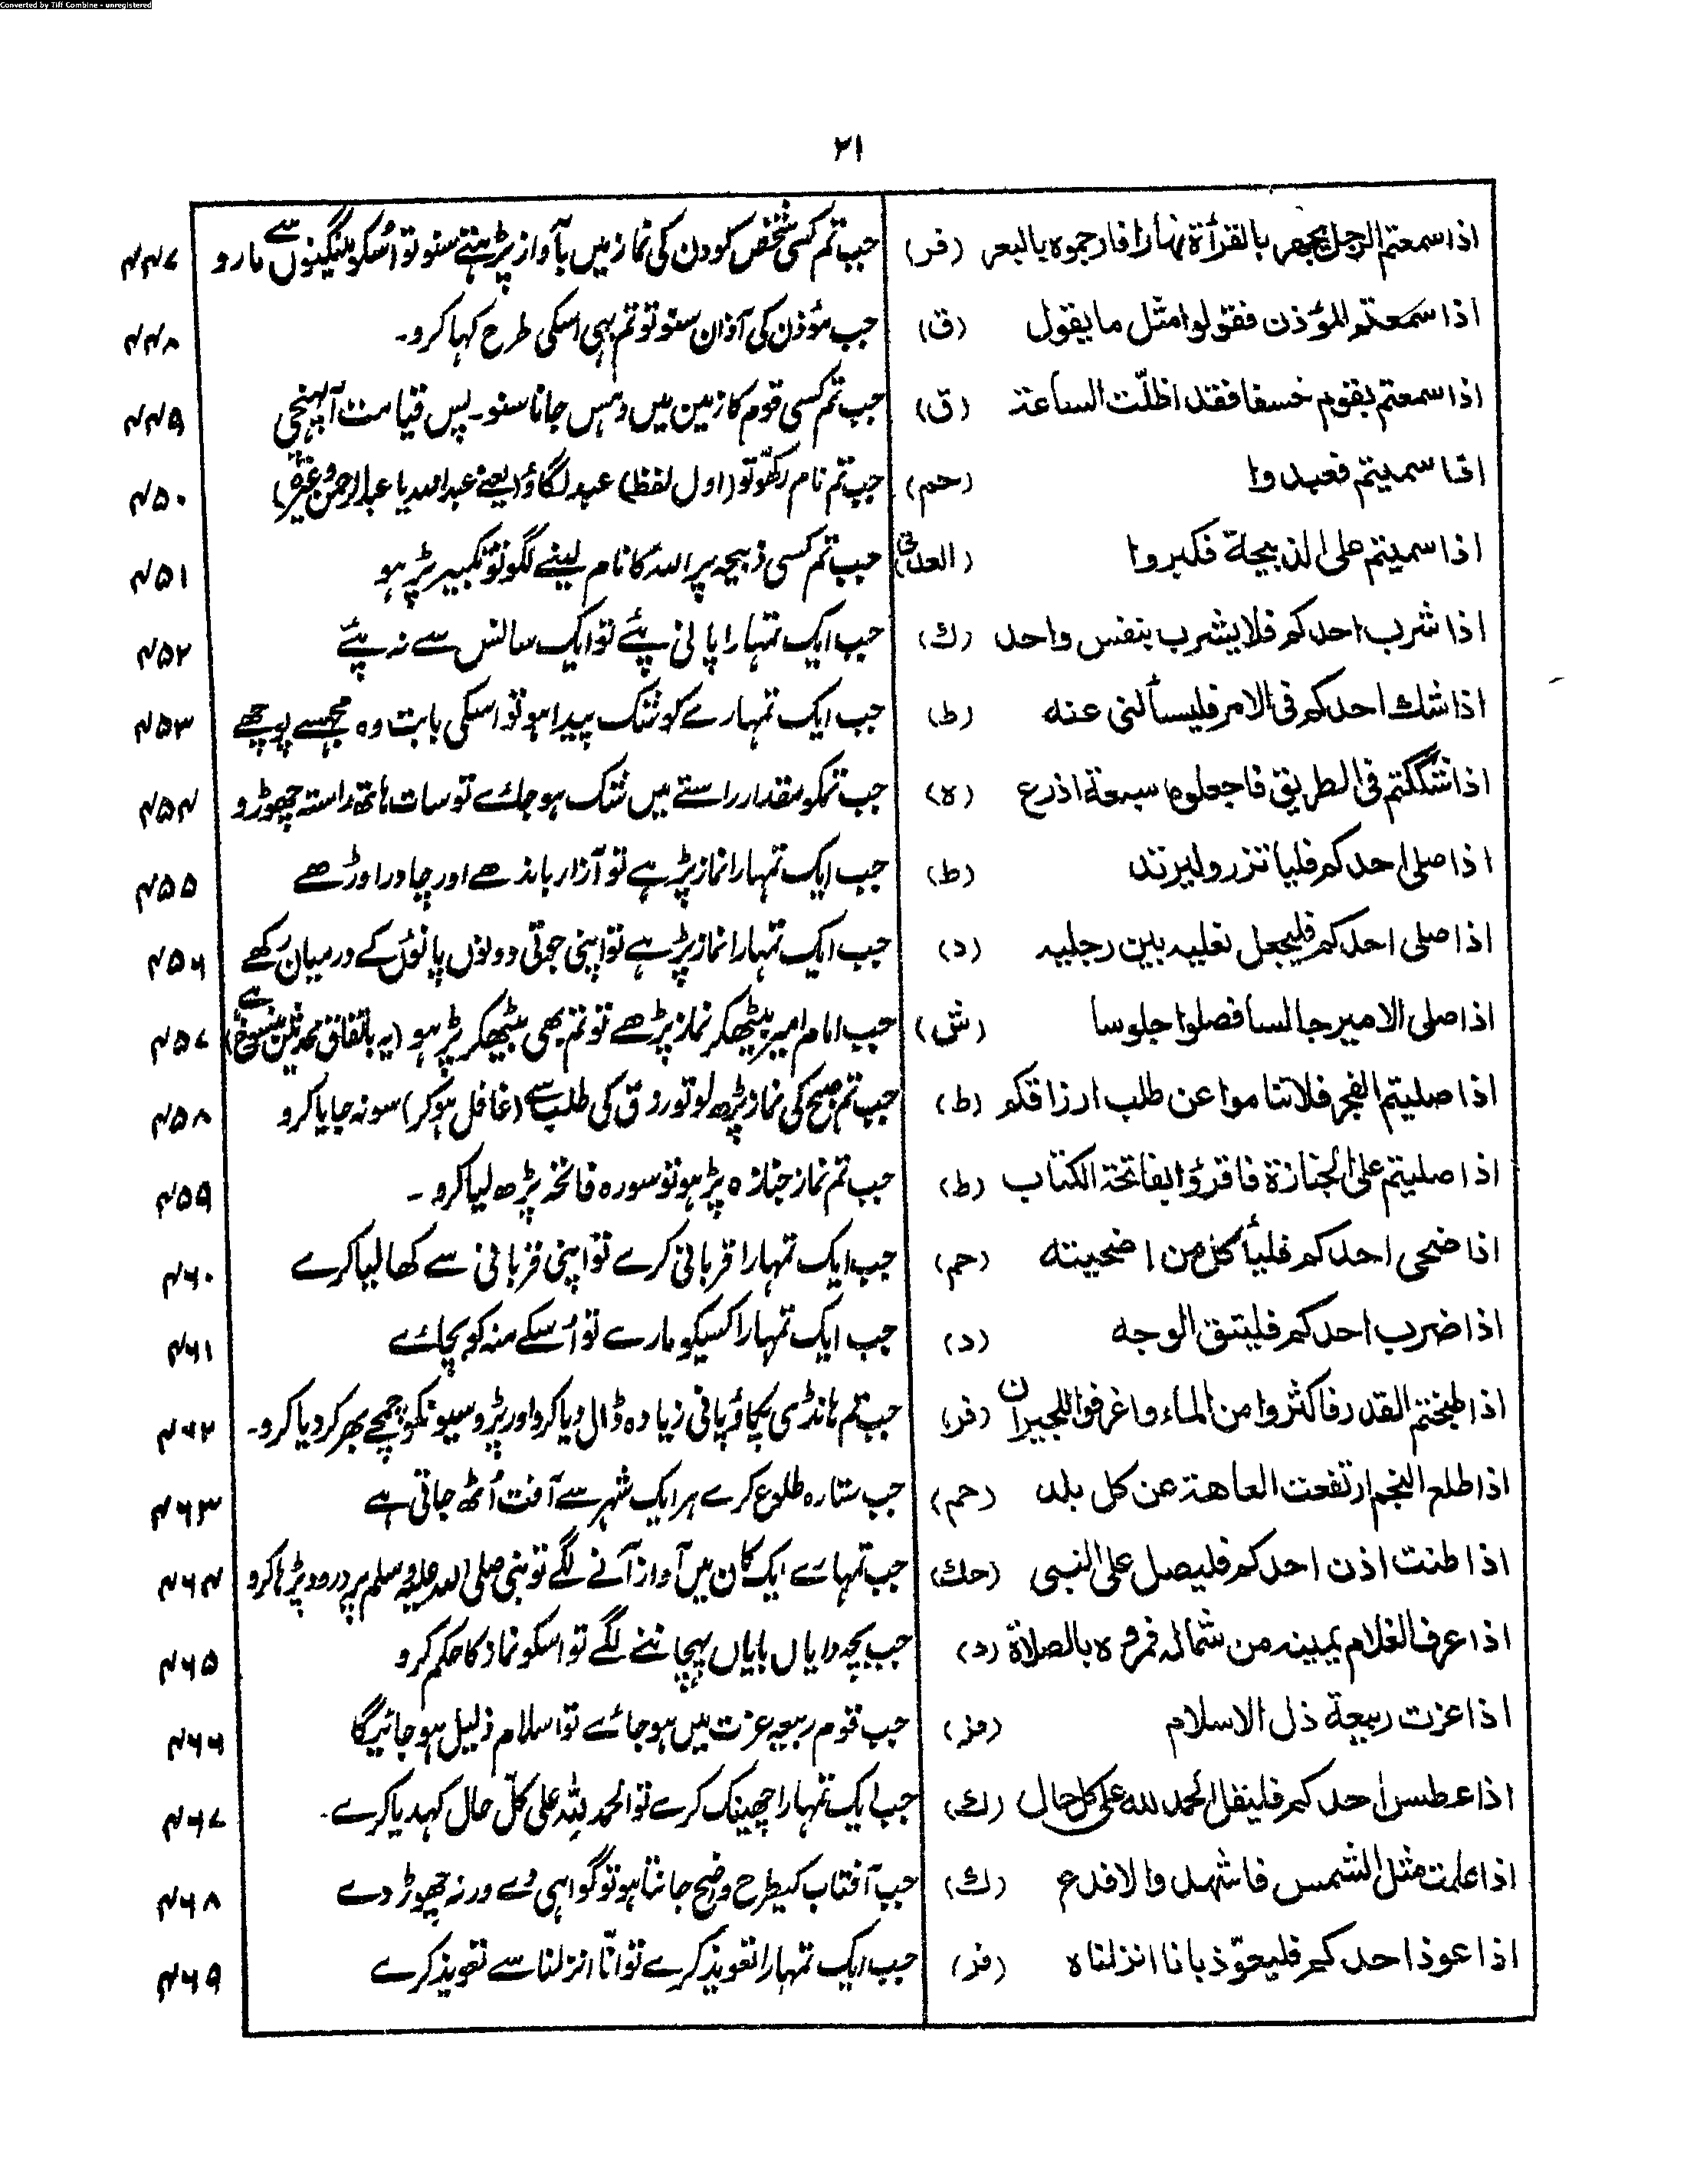 Converted by Tiff Combine - unregistered
۲۱
اذا سمعتم الرجل يجهر بالقرأة نهارا فارجموه بالبعر (فر) جب تم کسی شخص کو دن کی نماز میں بآواز پڑہتے سنو تو اُسکو مینگینوں سے مارو ۴۴۷
اذا سمعتم المؤذن فقولوا مثل ما يقول (ق) جب مؤذن کی آذان سنو تو تم بہی اسکی طرح کہا کرو۔ ۴۴۸
اذا سمعتم بقوم خسفا فقد اظلّت الساعة (ق) جب تم کسی قوم کا زمین میں دہس جانا سنو۔ پس قیامت آپہنچی ۴۴۹
اذا سميتم فعبدوا (حم) جب تم نام رکھو تو (اول لفظ) عبد لگاؤ (یعنے عبداللہ یا عبدالرحمن وغیرہ) ۴۵۰
اذا سميتم على الذبيحة فكبروا (العدنی) جب تم کسی ذبیحہ پر اللہ کا نام لینے لگو تو تکبیر پڑہو ۴۵۱
اذا شرب احدكم فلا يشرب بنفس واحد (ك) جب ایک تمہارا پانی پئے تو ایک سانس سے نہ پئے ۴۵۲
اذا شك احدكم فى الامر فليسألنى عنه (ط) جب ایک تمہارے کو شک پیدا ہو تو اسکی بابت وہ مجہسے پوچھے ۴۵۳
اذا شككتم فى الطريق فاجعلوه سبعة اذرع (ه) جب تمکو مقدار راستے میں شک ہو جائے تو سات ہاتھ راستہ چھوڑو ۴۵۴
اذا صلى احدكم فليأتزر وليرتد (ط) جب ایک تمہارا نماز پڑہے تو آزار باندھے اور چادر اوڑھے ۴۵۵
اذا صلى احدكم فليجعل نعليه بين رجليه (د) جب ایک تمہارا نماز پڑہے تو اپنی جوتی دونوں پانؤں کے درمیان رکھے ۴۵۶
اذا صلى الامير جالسا فصلوا جلوسا (ش) جب امام امیر بیٹھکر نماز پڑھے تو تم بھی بیٹھکر پڑہو (یہ باتفاق محدثین منسوخ ہے) ۴۵۷
اذا صليتم الفجر فلا تناموا عن طلب ارزاقكم (ط) جب تم صبح کی نماز پڑھ لو تو روق کی طلب سے (غافل ہوکر) سو نہ جایا کرو ۴۵۸
اذا صليتم على الجنازة فاقرؤا بفاتحة الكتاب (ط) جب تم نماز جنازہ پڑہو تو سورہ فاتحہ پڑھ لیا کرو۔ ۴۵۹
اذا ضحى احدكم فليأكل من اضحيته (حم) جب ایک تمہارا قربانی کرے تو اپنی قربانی سے کھا لیا کرے ۴۶۰
اذا ضرب احدكم فليتق الوجه (د) جب ایک تمہارا کسیکو مارے تو اُسکے منہ کو بچائے ۴۶۱
اذا طبختم القدر فاكثروا من الماء واغرفوا للجيران (فر) جب تم ہانڈی پکاؤ پانی زیادہ ڈال دیا کرو اور پڑوسیونکو چمچے بھر کر دیا کرو۔ ۴۶۲
اذا طلع النجم ارتفعت العاهة عن كل بلد (حم) جب ستارہ طلوع کرے ہر ایک شہر سے آفت اُٹھ جاتی ہے ۴۶۳
اذا طنت اذن احدكم فليصل على النبى (حك) جب تمہارے ایک کان میں آواز آنے لگے تو نبی صلی اللہ علیہ وسلم پر درود پڑہا کرو ۴۶۴
اذا عرف الغلام يمينه من شماله فمروه بالصلاة (د) جب بچہ دایاں بایاں پہچاننے لگے تو اسکو نماز کا حکم کرو ۴۶۵
اذا عزت ربيعة ذل الاسلام (فر) جب قوم ربیعہ عزت میں ہو جائے تو اسلام ذلیل ہو جائیگا ۴۶۶
اذا عطس احدكم فليقل الحمد لله على كل حال (ك) جب ایک تمہارا چھینک کرے تو الحمد للہ علی کلّ حال کہدیا کرے۔ ۴۶۷
اذا علمت مثل الشمس فاشهد والا فدع (ك) جب آفتاب کیطرح واضح جانتا ہو تو گواہی دے ورنہ چھوڑ دے ۴۶۸
اذا عوذ احدكم فليعوّذ بانا انزلناه (فر) جب ایک تمہارا تعویذ کرے تو انّا انزلنا سے تعویذ کرے ۴۶۹